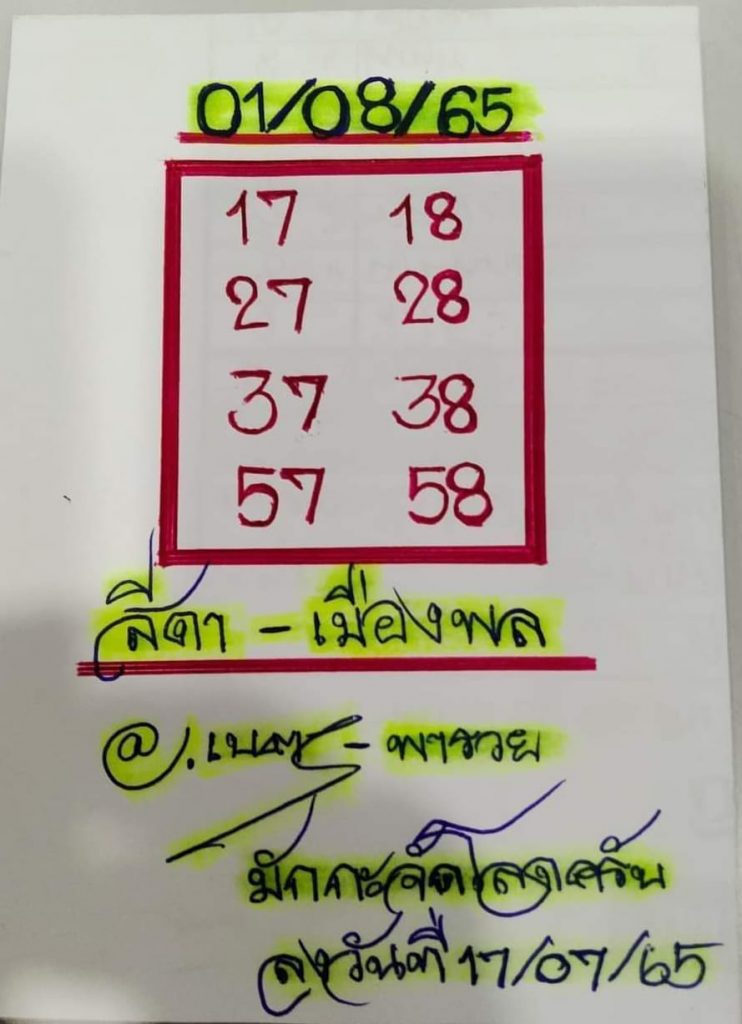 01/08/65
17 18
27 28
37 38
57 58
สีดา - เมืองพล
@. - พารวย
มักกะจัดโลดครับ
ลงวันที่ 17/07/65